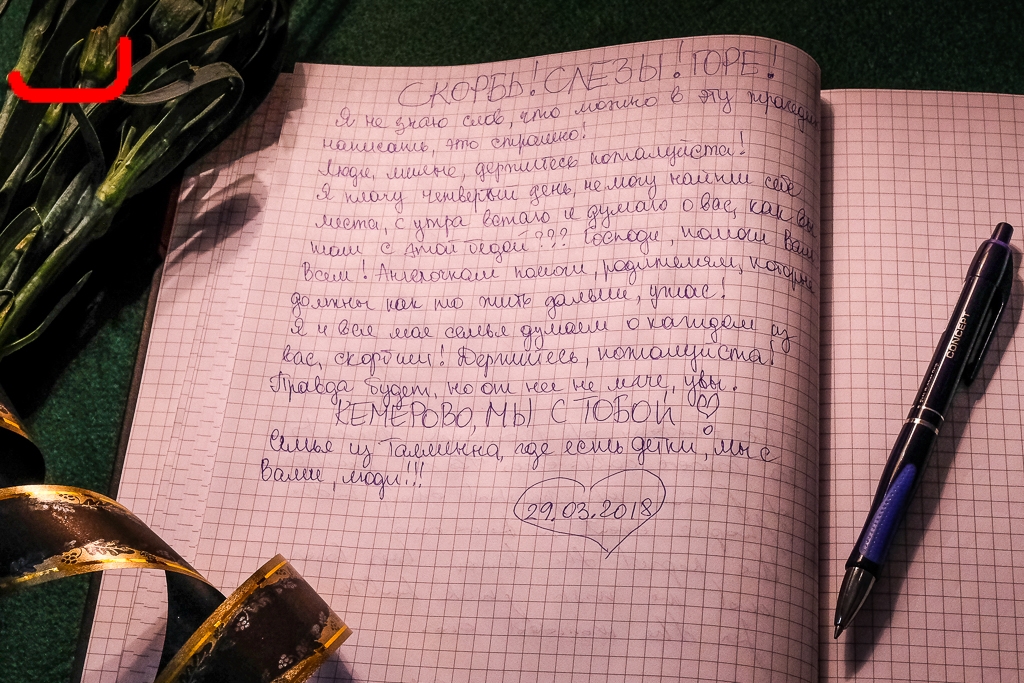 СКОРБЬ! СЛЕЗЫ! ГОРЕ!
Я не знаю слов, что можно в эту трагедию
написать, это страшно!
Люди, милые, держитесь пожалуйста!
Я плачу четвертый день, не могу найти себе
места, с утра встаю и думаю о вас, как вы
там с этой бедой??? Господи, помоги Вам
Всем! Ангелочкам помоги, родителям, которые
должны как то жить дальше, ужас!
Я и вся моя семья думаем о каждом из
вас, скорбим! Держитесь, пожалуйста!
Правда будет, но от нее не легче, увы.
КЕМЕРОВО, МЫ С ТОБОЙ
Семья из Таллинна, где есть детки, мы с
Вами, люди!!!
29.03.2018
CONCEPT